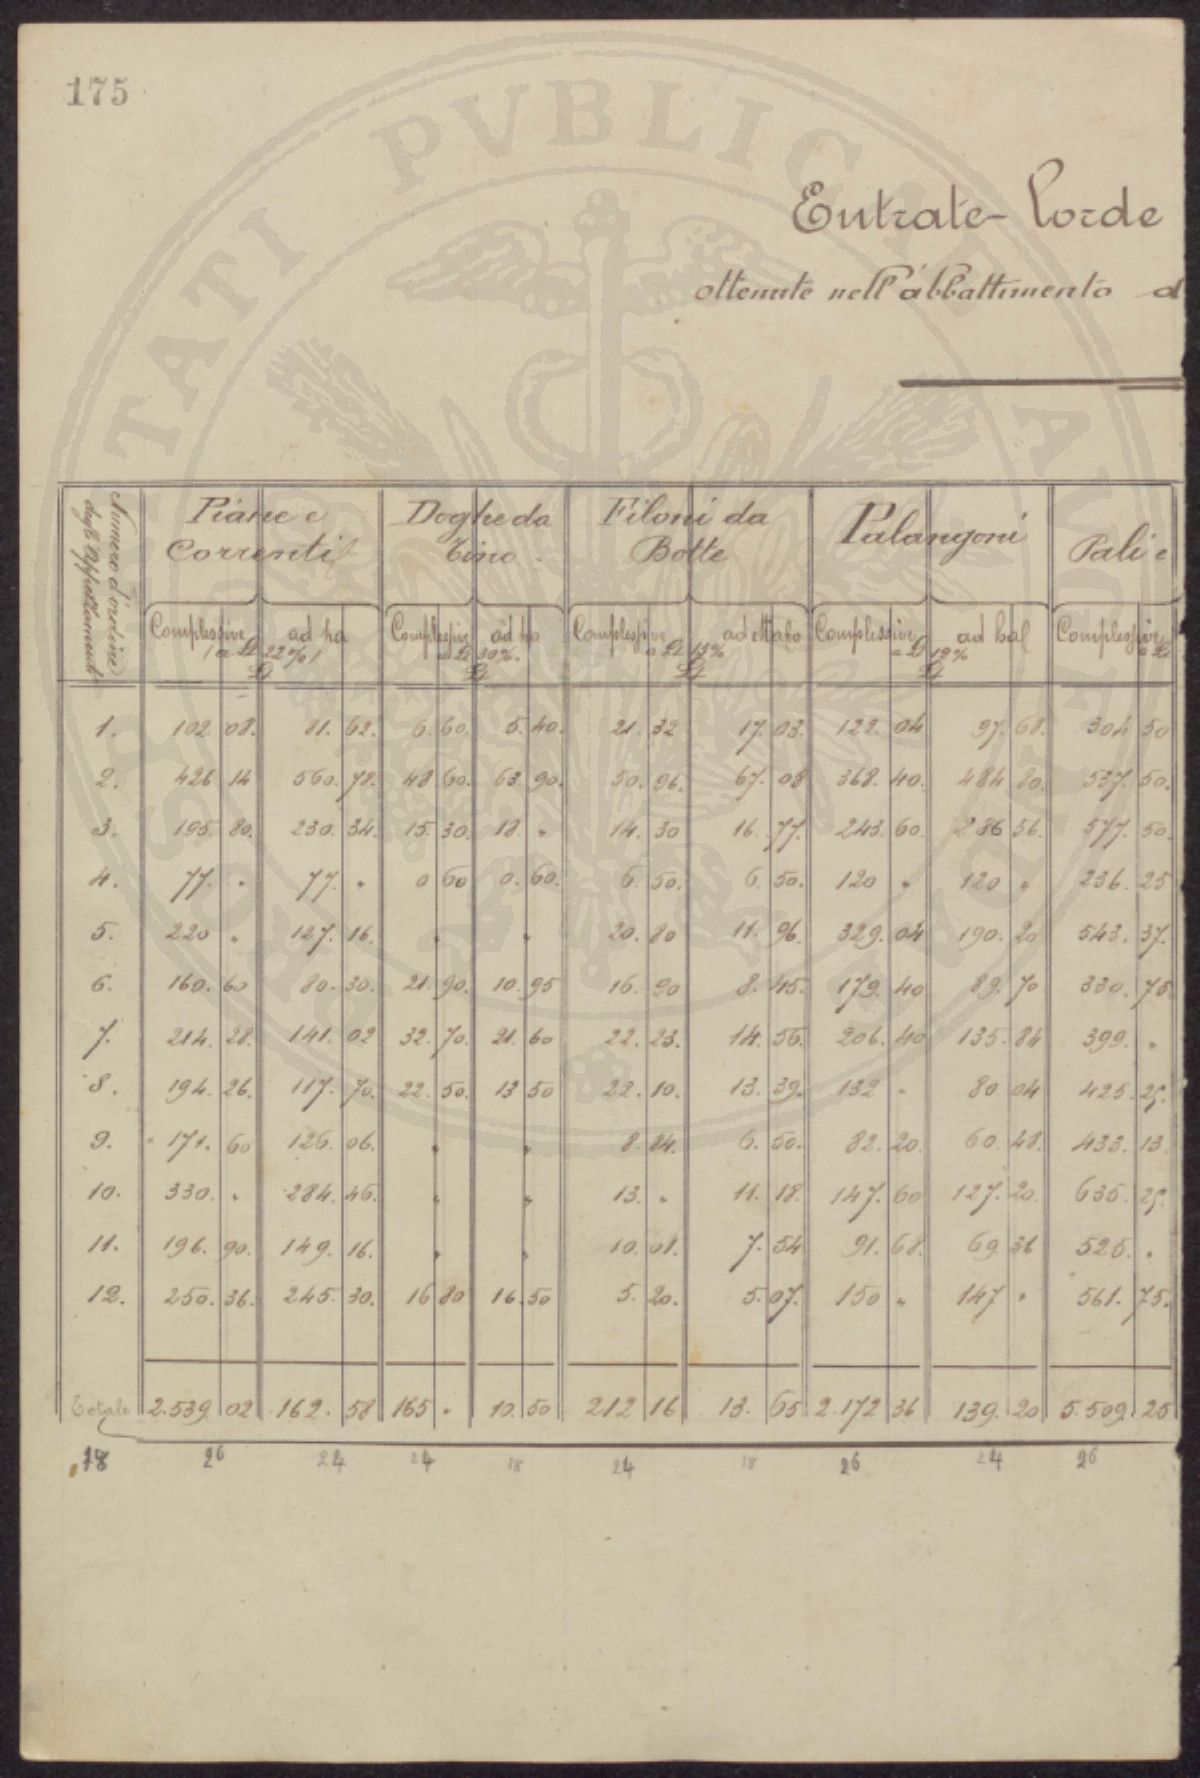 175
PVBLICAE
TATI
Entrate-Lorde
ottenute nell'abbattimento d
Numero d'ordine degli Appezzamenti
Piane e Correnti
Doghe da Tino
Filoni da Botte
Palangoni
Pali e
Complessive ad ha Complessive ad ha Complessive ad ettaro Complessive ad ha Complessive
1. 102 08. 81. 62. 6. 60. 5. 40. 21. 32 17. 03. 122. 04 97. 68. 304 50
2. 426 14 560. 78. 48 60. 63. 90. 50. 96. 67. 08 368. 40. 484 80. 537. 50.
3. 195. 80. 230. 34. 15. 30. 18. " 14. 30 16. 77. 243. 60. 286 56. 577. 50.
4. 77. " 77. " 0 60 0. 60. 6. 50. 6. 50. 120 " 120 " 236. 25
5. 220 " 127. 16. " " 20. 80 11. 96. 329. 04 190. 20 543. 37.
6. 160. 60 80. 30. 21. 90. 10. 95 16. 90 8. 45. 179. 40 89. 70 330. 75.
7. 214. 28. 141. 02 32. 70. 21. 60 22. 23. 14. 56. 206. 40 135. 84 399. "
8. 194. 26. 117. 70. 22. 50. 13 50 22. 10. 13. 39. 132 " 80 04 425. 25.
9. 171. 60 126. 06. " " 8. 84. 6. 50. 82. 20. 60. 48. 433. 13.
10. 330. " 284. 46. " " 13. " 11. 18. 147. 60 127. 20. 635. 25.
11. 196. 90. 149. 16. " " 10. 01. 7. 54 91. 68. 69. 36 525. "
12. 250. 36. 245. 30. 16 80 16. 50 5. 20. 5. 07. 150 " 147 " 561. 75.
Totale 2.539. 02 162. 58 165 " 10. 50 212 16 13. 65 2.172 36 139. 20 5.509. 25
18 26 24 24 18 24 18 26 24 26